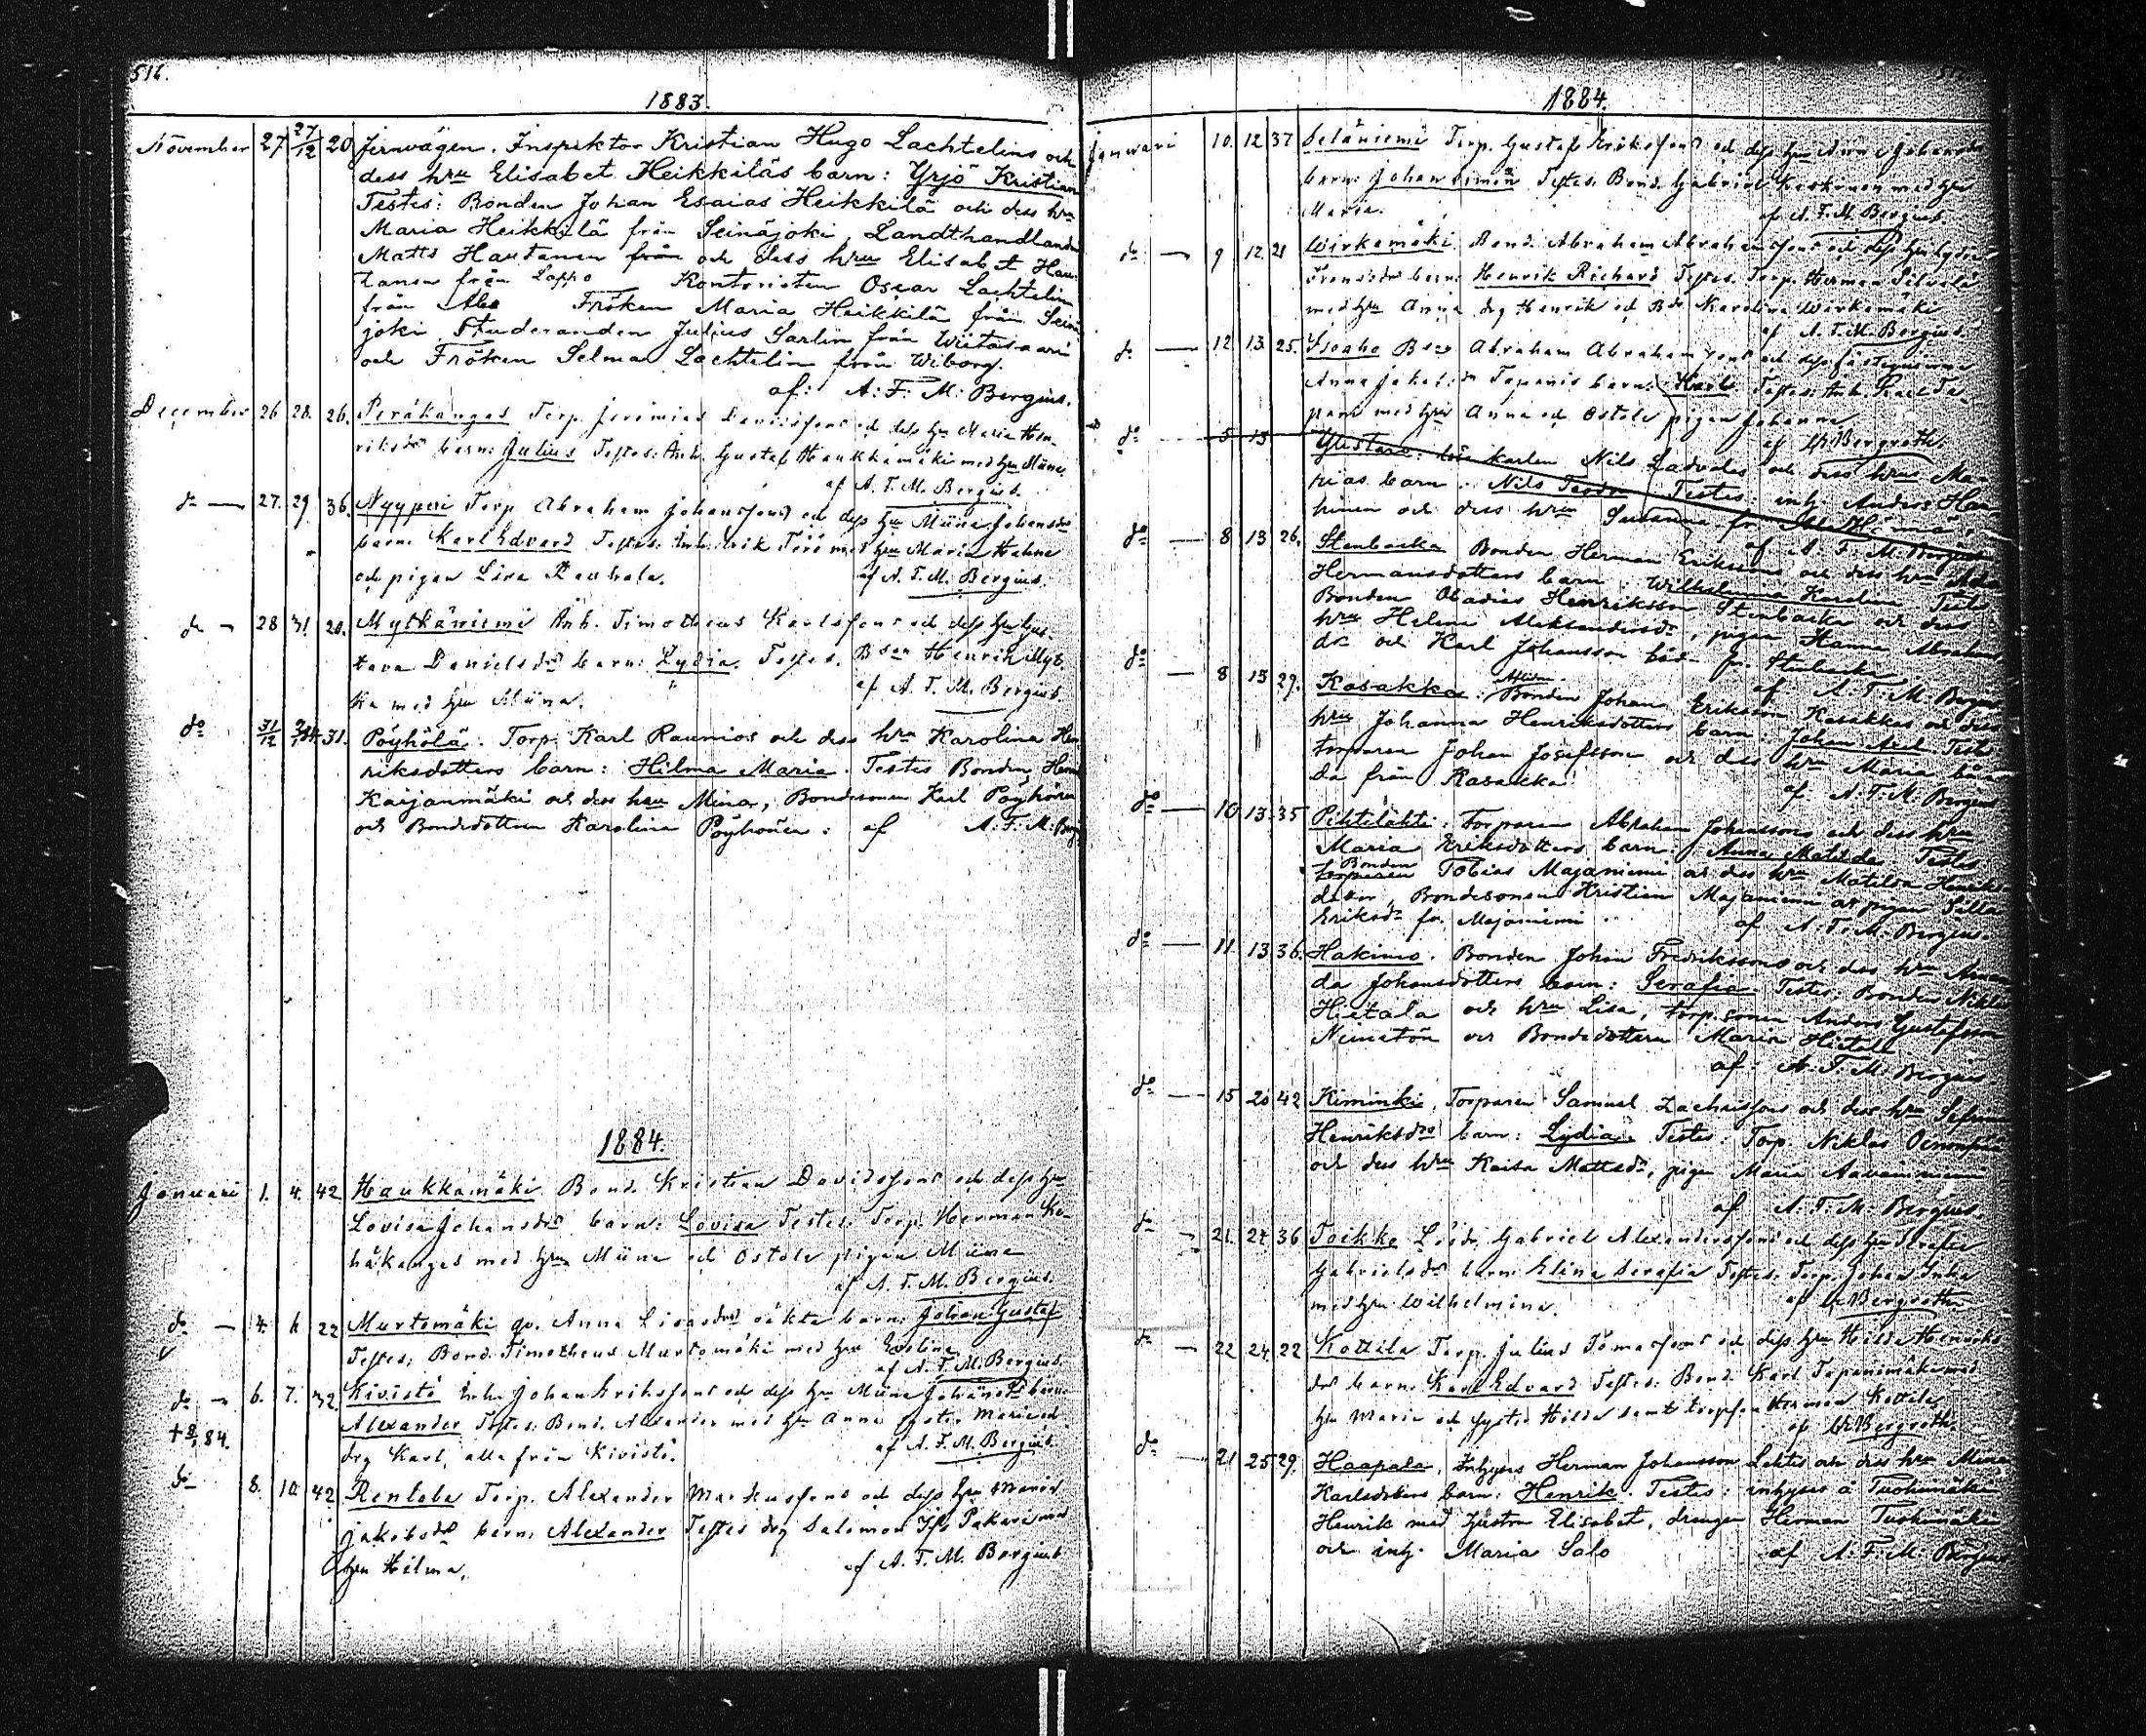 516.
1883.
November 27 27/12 20 Jernvägen. Inspektor Kristian Hugo Lachtelins och
dess hru Elisabet Heikkiläs barn: Yrjö Kristian
Testes: Bonden Johan Esaias Heikkilä och dess hru
Maria Heikkilä från Seinäjoki, Landthandlanden
Matts Hautanen från och dess hru Elisabet Hau-
tanen från Lappo Kontoristen Oscar Lachtelin
från Åbo Fröken Maria Heikkilä från Seinä
joki Studeranden Julius Sarlin från Wiitasaari
och Fröken Selma Lachtelin från Wiborg.
af: A: F: M: Bergius.
December 26 28. 26. Peräkangas Torp. Jeremias Davidssons och dess hru Maria Hen-
riksdrs barn: Julius Testes: Inh. Gustaf Haukkamäki med hru Miina
af A. F. M. Bergius.
do 27. 29. 36. Nyyperi Torp Abraham Johanssons och dess hru Miina Johansdrs
barn: Karl Edvard Testes: Inh. Erik med hru Maria
och pigan Lisa Rauhala. af A. F. M. Bergius.
do 28 31 20. Mytkäniemi Inh. Timotheus Karlssons och dess hru Gus-
tava Danielsdrs barn: Lydia. Testes. Bson Henrik Myt
kä med hru Miina. af A. F. M. Bergius.
do 31/12 31. Pöyhölä. Torp. Karl Raunios och dess hru Karolina Hen
riksdotters barn: Hilma Maria. Testes Bonden Henrik
Kaijanmäki och dess hru Mina, Bondesonen Karl Pöyhönen
och Bondedottern Karolina Pöyhönen: af A: F: M: Bergius
1884.
Januari 1. 4. 42 Haukkamäki Bond. Kristian Davidssons och dess hru
Lovisa Johansdrs barn: Lovisa Testes: Torp. Herman Ke-
häkangas med hru Miina och Ostolv pigan Miina
af A. F. M. Bergius.
do 4. 6 22 Murtomäki qv. Anna Lisas oäkta barn: Johan Gustaf
Testes: Bond. Timotheus Murtomäki med hru Evelina
af A. F. M. Bergius.
do 6. 7. 32 Kivistö Inh. Johan Erikssons och dess hru Miina Johansdrs barn:
Alexander Testes: Bond. Alexander med hru Anna syster Maria och
drg Karl, alla från Kivistö. af A. F. M. Bergius
84.
do 8. 10. 42 Rentola Torp. Alexander Markussons och dess hru Maria
Jakobsdrs barn: Alexander Testes drg Salomon Pakari med
hru Hilma. af A. F. M. Bergius
1884.
Januari 10. 12 37 Torp. Gustaf Erikssons och dess hru Anna Johansdrs
barn: Johan Simon Testes: Bond. Gabriel Keskinen med hru
Maria. af A. F. M. Bergius
do 9 12. 21 Wirkamäki Bond. Abraham Abrahamssons och dess hru Lydia
barn: Henrik Richard Testes. Torp. Herman
med hru Anna drg Henrik och Bdr Karolina Wirkamäki
af A. F. M. Bergius.
do 12 13 25. Isoaho Bson Abraham Abrahamssons och dess fästeqvinna
Anna Jakobsdr Tapanis barn: Karl Testes: Inh. Ta-
pani med hru Anna och Ostolv pigan Johanna
af Bergroth.
do 5 13 Ylistaro: Nils Ladvalas och dess hrus Ma-
rias barn: Nils Teodor Testes: inh. Anders Han-
hinen och dess hru Susanna fr.
af A. F. M. Bergius
do 8 13 26. Stenbacka Bonden Herman Erikssons och dess hru
Hermansdotters barn: Wilhelmina Karolina Testes
Bonden Obadias Henriksson Stenbacka och dess
hru Helena Aleksandersdr, pigan Hanna Abrahams
dr och Karl Johansson båd- fr. Stenbacka
af A. F. M. Bergius
do 8 13 29. Kasakka: Bonden Johan Eriksson Kasakkas och dess
hru Johanna Henriksdotters barn: Johan Testes
torparen Johan Josefsson och dess hru Maria bå-
da från Kasakka. af. A. F. M. Bergius
do 10 13 35 Pihtilahti. Torparen Abraham Johanssons och dess hru
Maria Eriksdotters barn: Anna Matilda Testes
Bonden
torparen Tobias Majaniemi och dess hru Matilda Henriks
dotter, Bondesonen Kristian Majaniemi och pigan
Eriksdr fr. Majaniemi af A. F. M. Bergius.
do 11. 13 36. Hakimo. Bonden Johan Fredrikssons och dess hru Aman
da Johansdotters barn: Serafia Testes: Bonden
Hietala och hru Lisa, torp.sonen Anders Gustafsson
Niinistön och Bondedottern Maria Hietala
af: A. F. M. Bergius
do 15 20 42 Kiminki. Torparen Samuel Zachrissons och dess hru
Henriksdrs barn: Lydia Testes: Torp. Niklas
och dess hru Kaisa Mattsdr, pigan Maria
af A. F. M. Bergius
do 21. 24 36 Toikko Gabriel Alexanderssons och dess hru Serafia
Gabrielsdrs barn: Elina Serafia Testes: Torp. Johan
med hru Wilhelmina. af Bergroth
do 22 24. 22 Kottila Torp. Julius Tomassons och dess hru Hilda Henriks
drs barn: Karl Edvard Testes: Bond. Karl Tapanimäki med
hru Maria och syster Hilda samt torpson Herman Kottila
af Bergroth.
do 21 25 29. Haapala, Inhyses Herman Johansson Lehtis och dess hru Mina
Karlsdotters barn: Henrik. Testes: inhyses å Tuohimäki
Henrik med hustru Elisabet, drengen Herman Tuohimäki
och inh. Maria Salo af A: F: M: Bergius